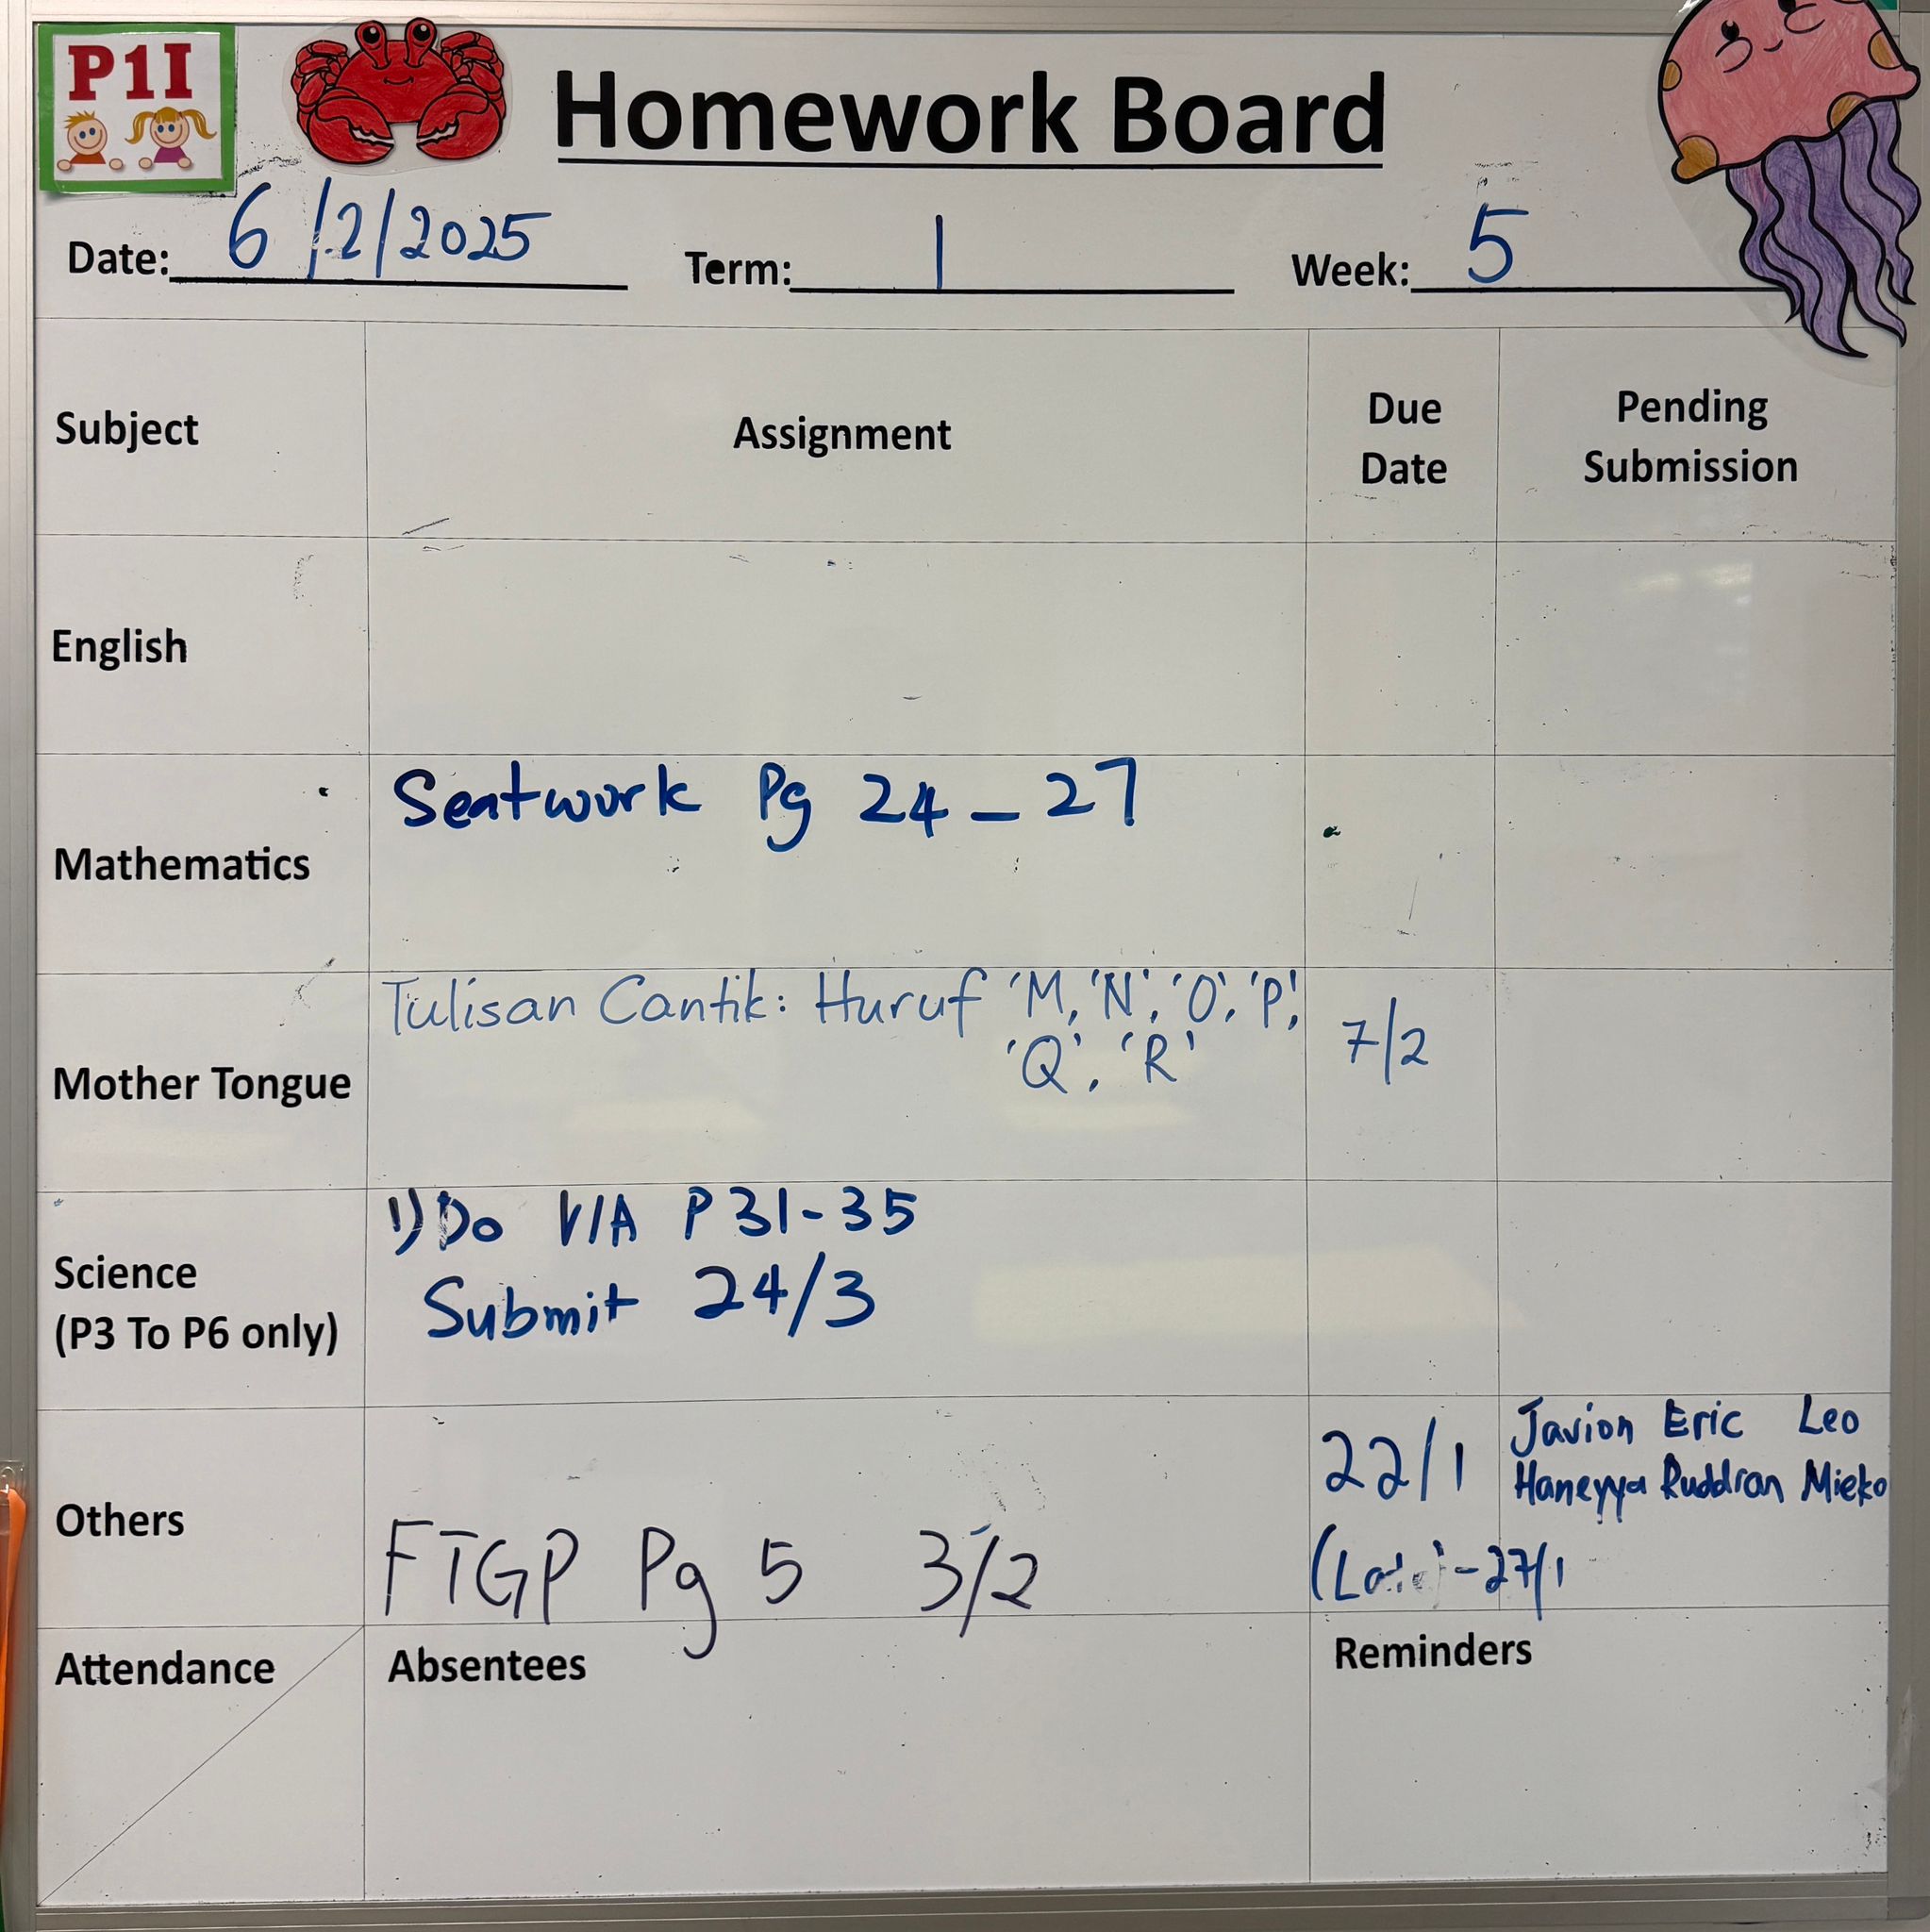 P1I
Homework Board
Date: 6/2/2025 Term: 1 Week: 5
Subject Assignment Due Date Pending Submission
English
Mathematics Seatwork Pg 24 - 27
Mother Tongue Tulisan Cantik: Huruf 'M, 'N', 'O', 'P',
'Q', 'R' 7/2
Science
(P3 To P6 only)
1) Do V/A P 31-35
Submit 24/3
Others
FTGP Pg 5 3/2
22/1
Javion Eric Leo
Haneyya Ruddran Mieko
-27/1
Attendance Absentees Reminders